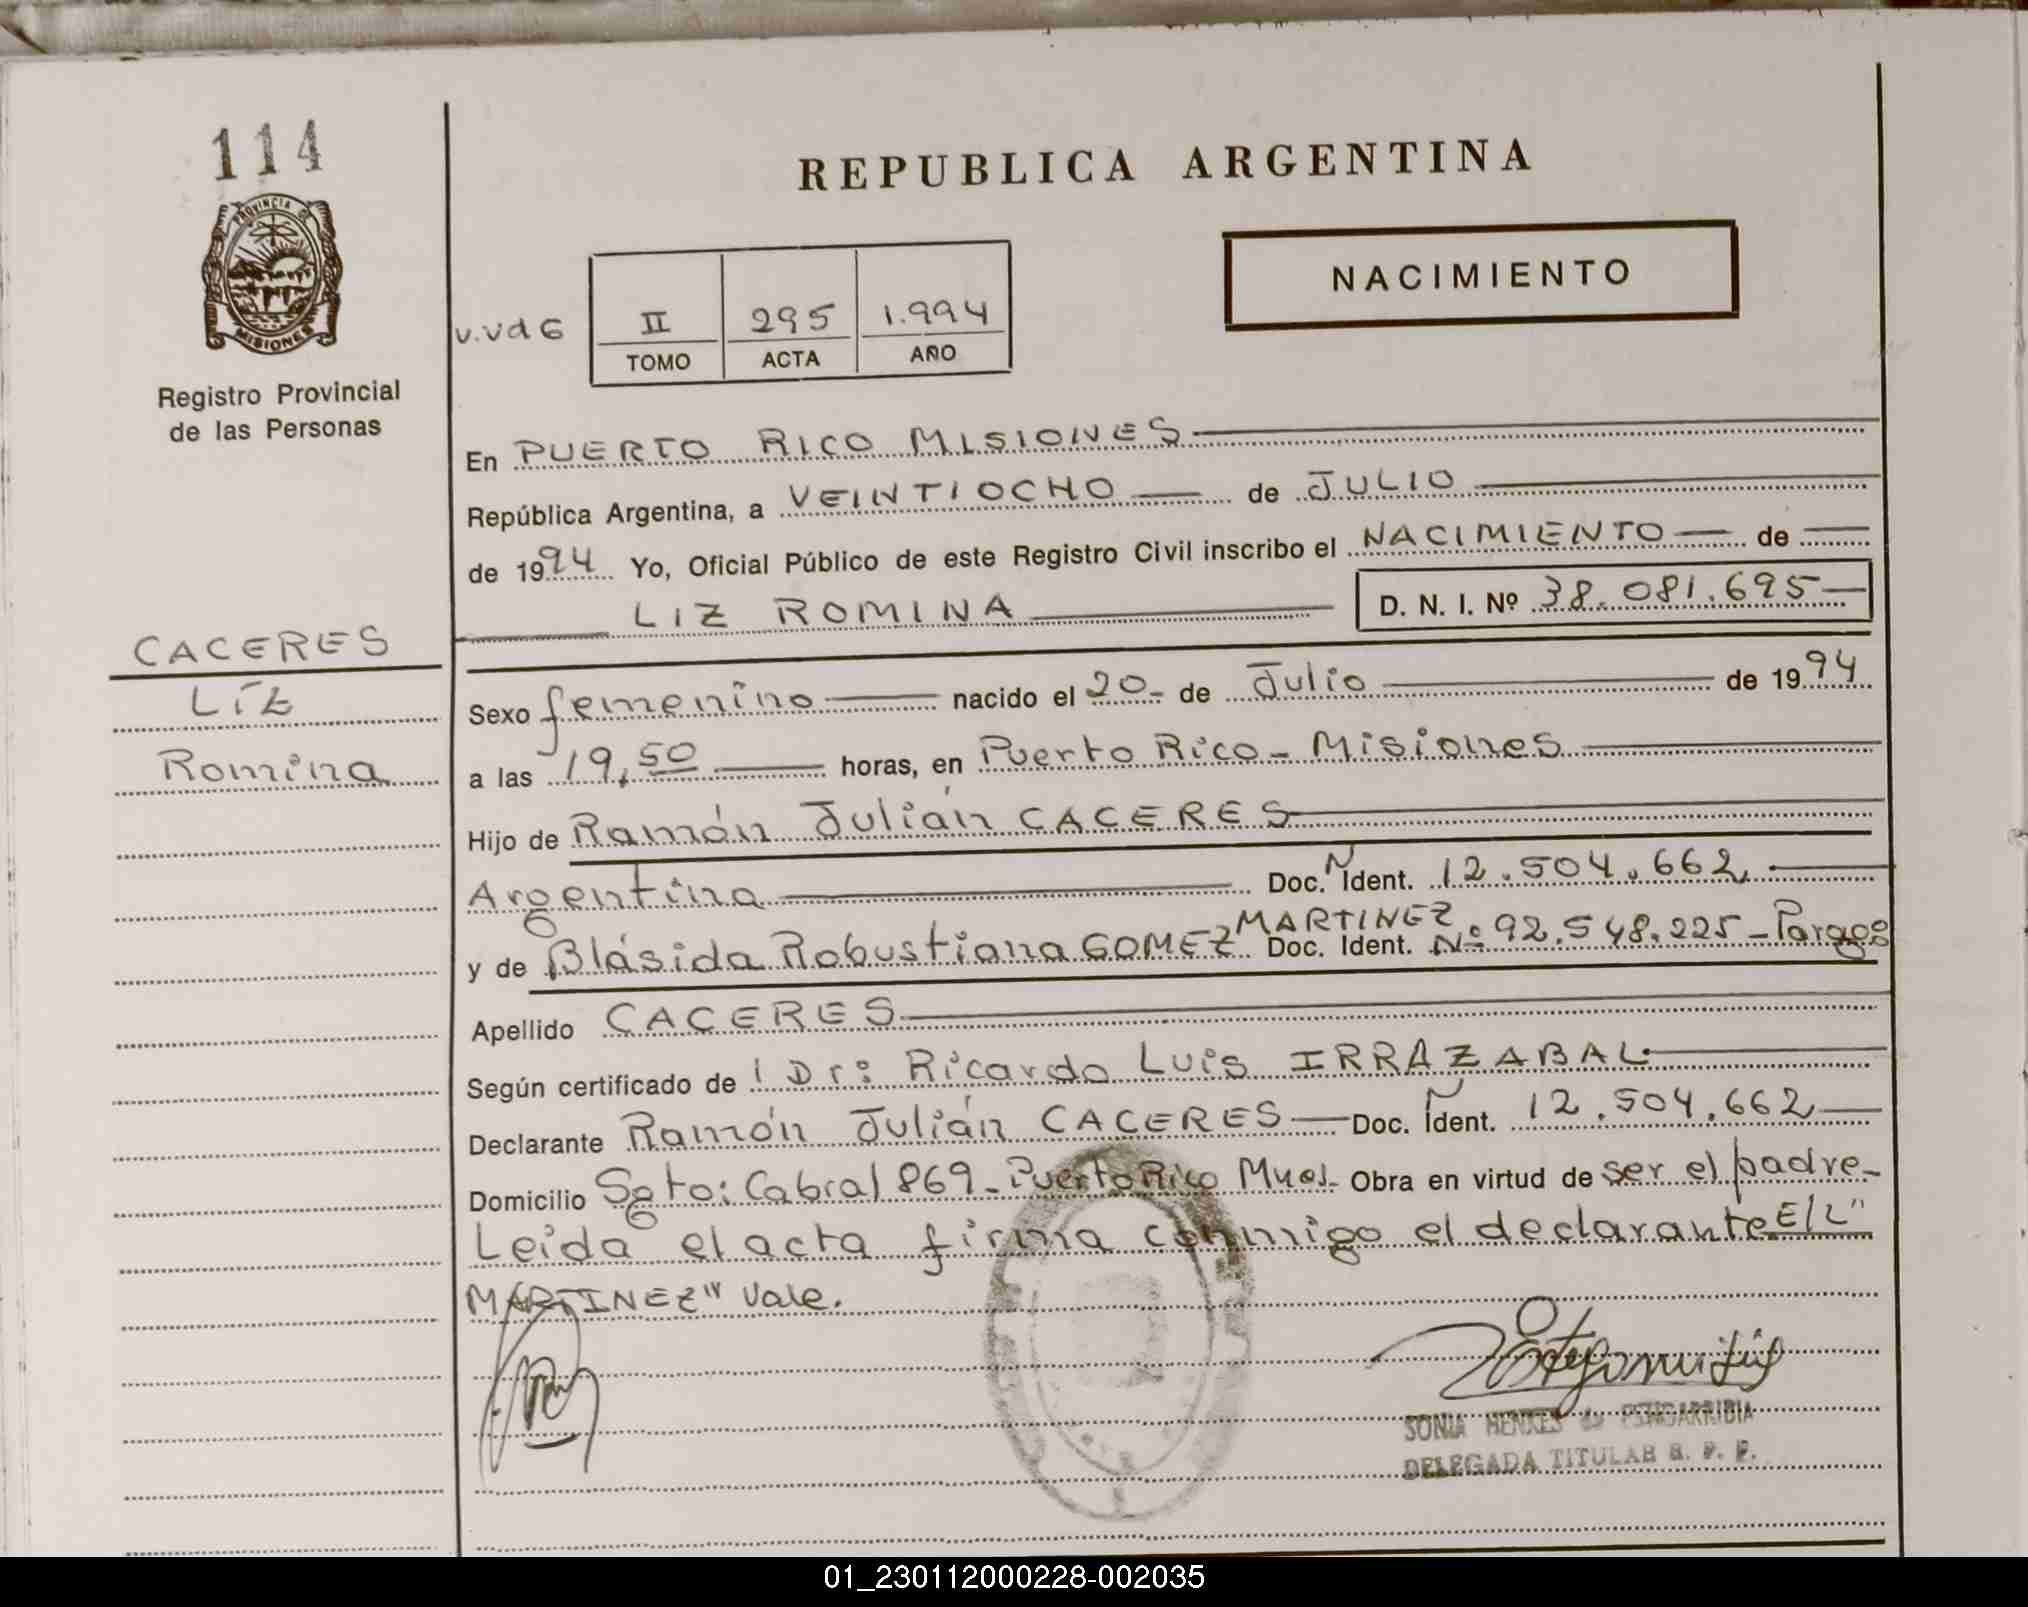 114
PROVINCIA DE
MISIONES
Registro Provincial
de las Personas
REPUBLICA ARGENTINA
NACIMIENTO
v.vd6
II 295 1.994
TOMO ACTA AÑO
En PUERTO RICO MISIONES
República Argentina, a VEINTIOCHO de JULIO
de 1994 Yo, Oficial Público de este Registro Civil inscribo el NACIMIENTO de
LIZ ROMINA D. N. I. Nº 38.081.695
CACERES
Líz
Romina
Sexo femenino nacido el 20 de Julio de 1994
a las 19,50 horas, en Puerto Rico - Misiones
Hijo de Ramón Julián CACERES
Argentina Doc. Ident. 12.504.662
MARTINEZ
y de Blásida Robustiana GOMEZ Doc. Ident. Nº 92.548.225 -
Apellido CACERES
Según certificado de Dr: Ricardo Luis IRRAZABAL
Declarante Ramón Julián CACERES Doc. Ident. 12.504.662
Domicilio Sgto: Cabral 869 - Puerto Rico Obra en virtud de ser el padre -
Leída el acta firma conmigo el declarante E/L"
MARTINEZ" Vale.
SONIA HENKES de
DELEGADA TITULAR R. P. P.
01_230112000228-002035